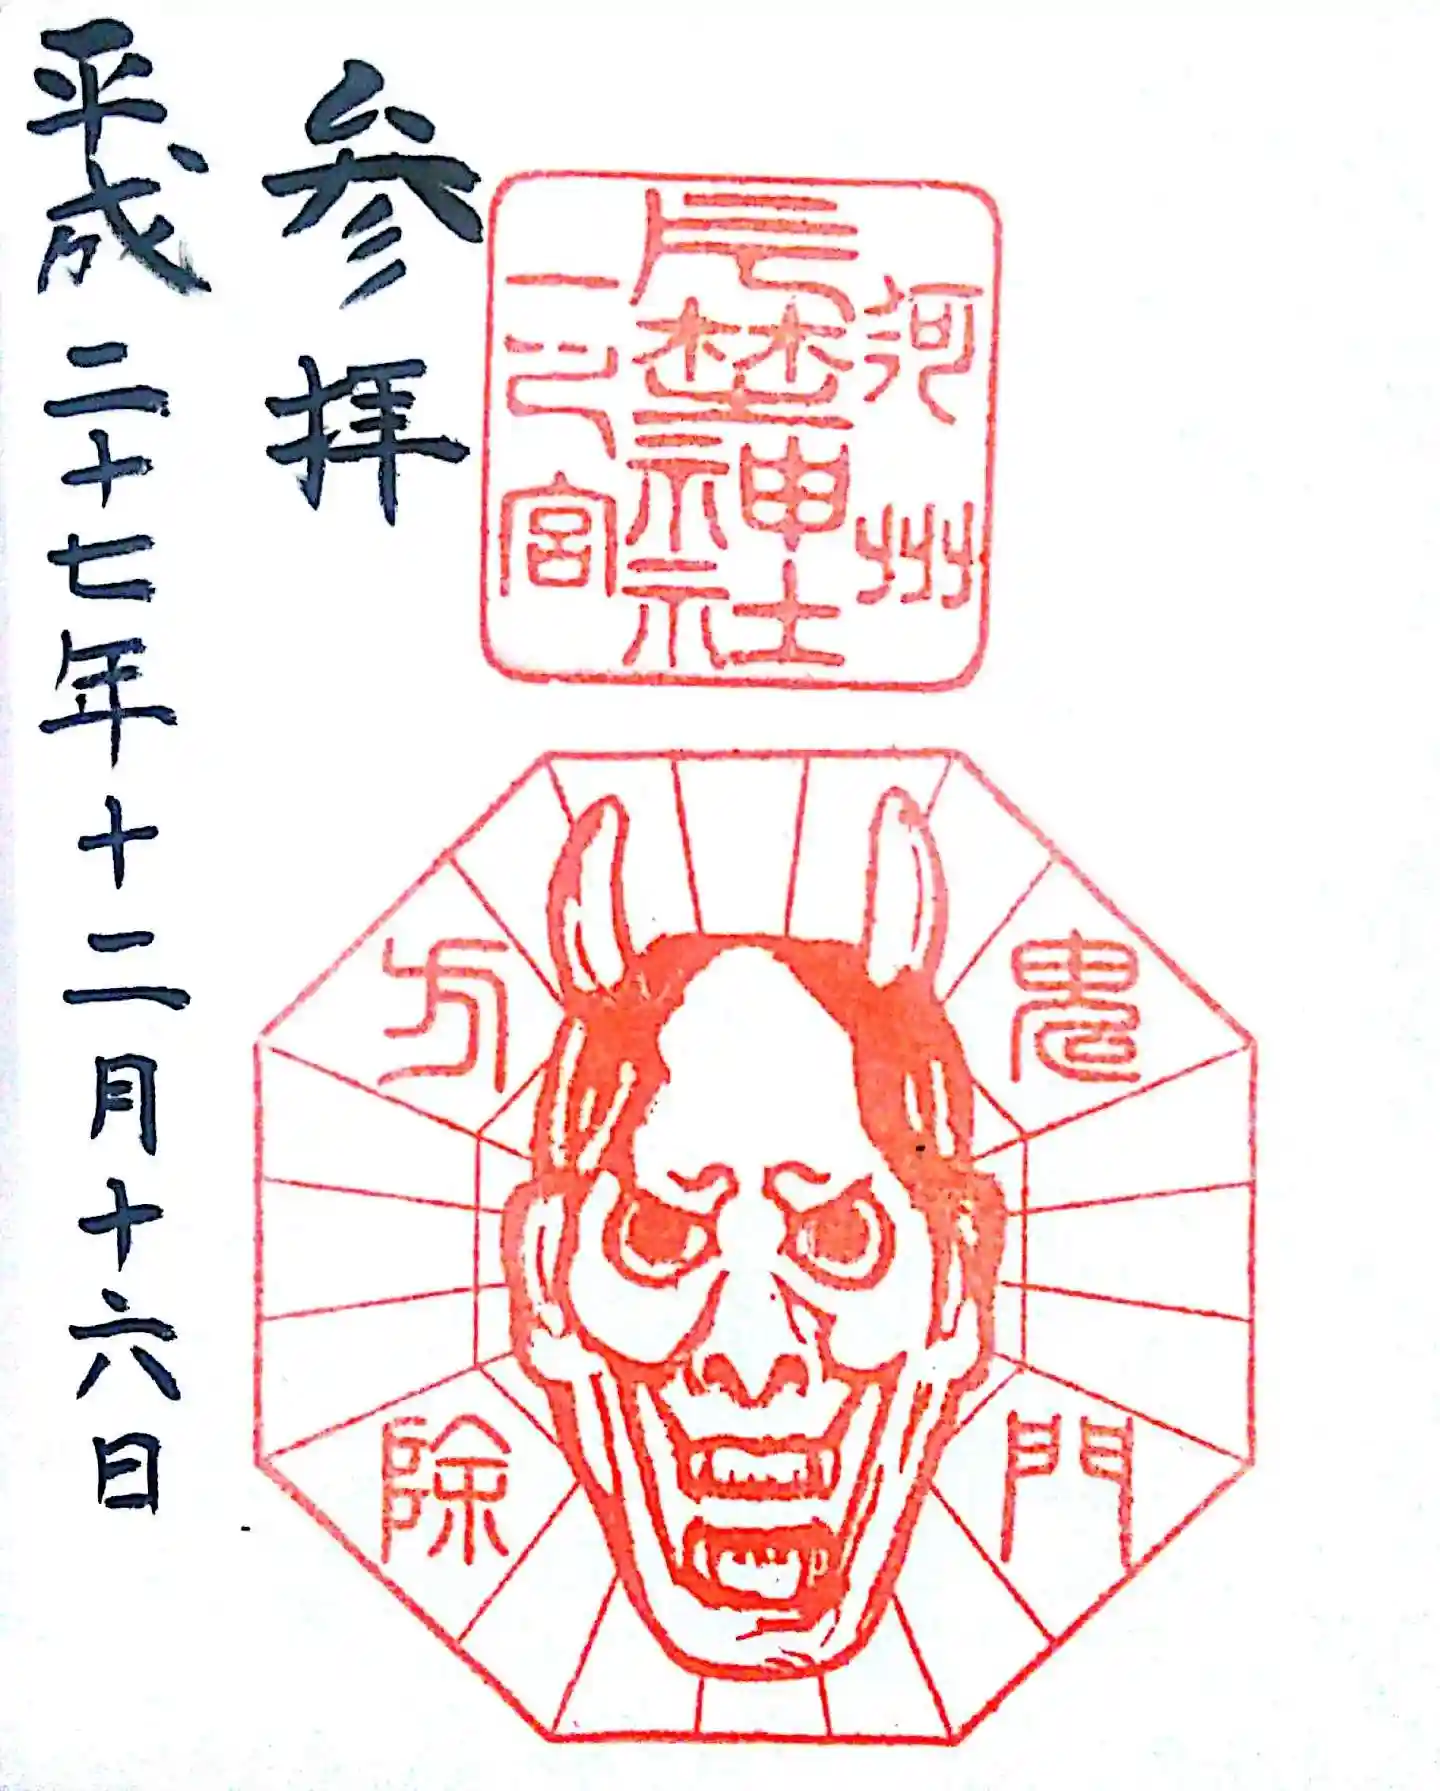 河州
片埜神社
一之宮
鬼門
方除
参拝
平成二十七年十二月十六日